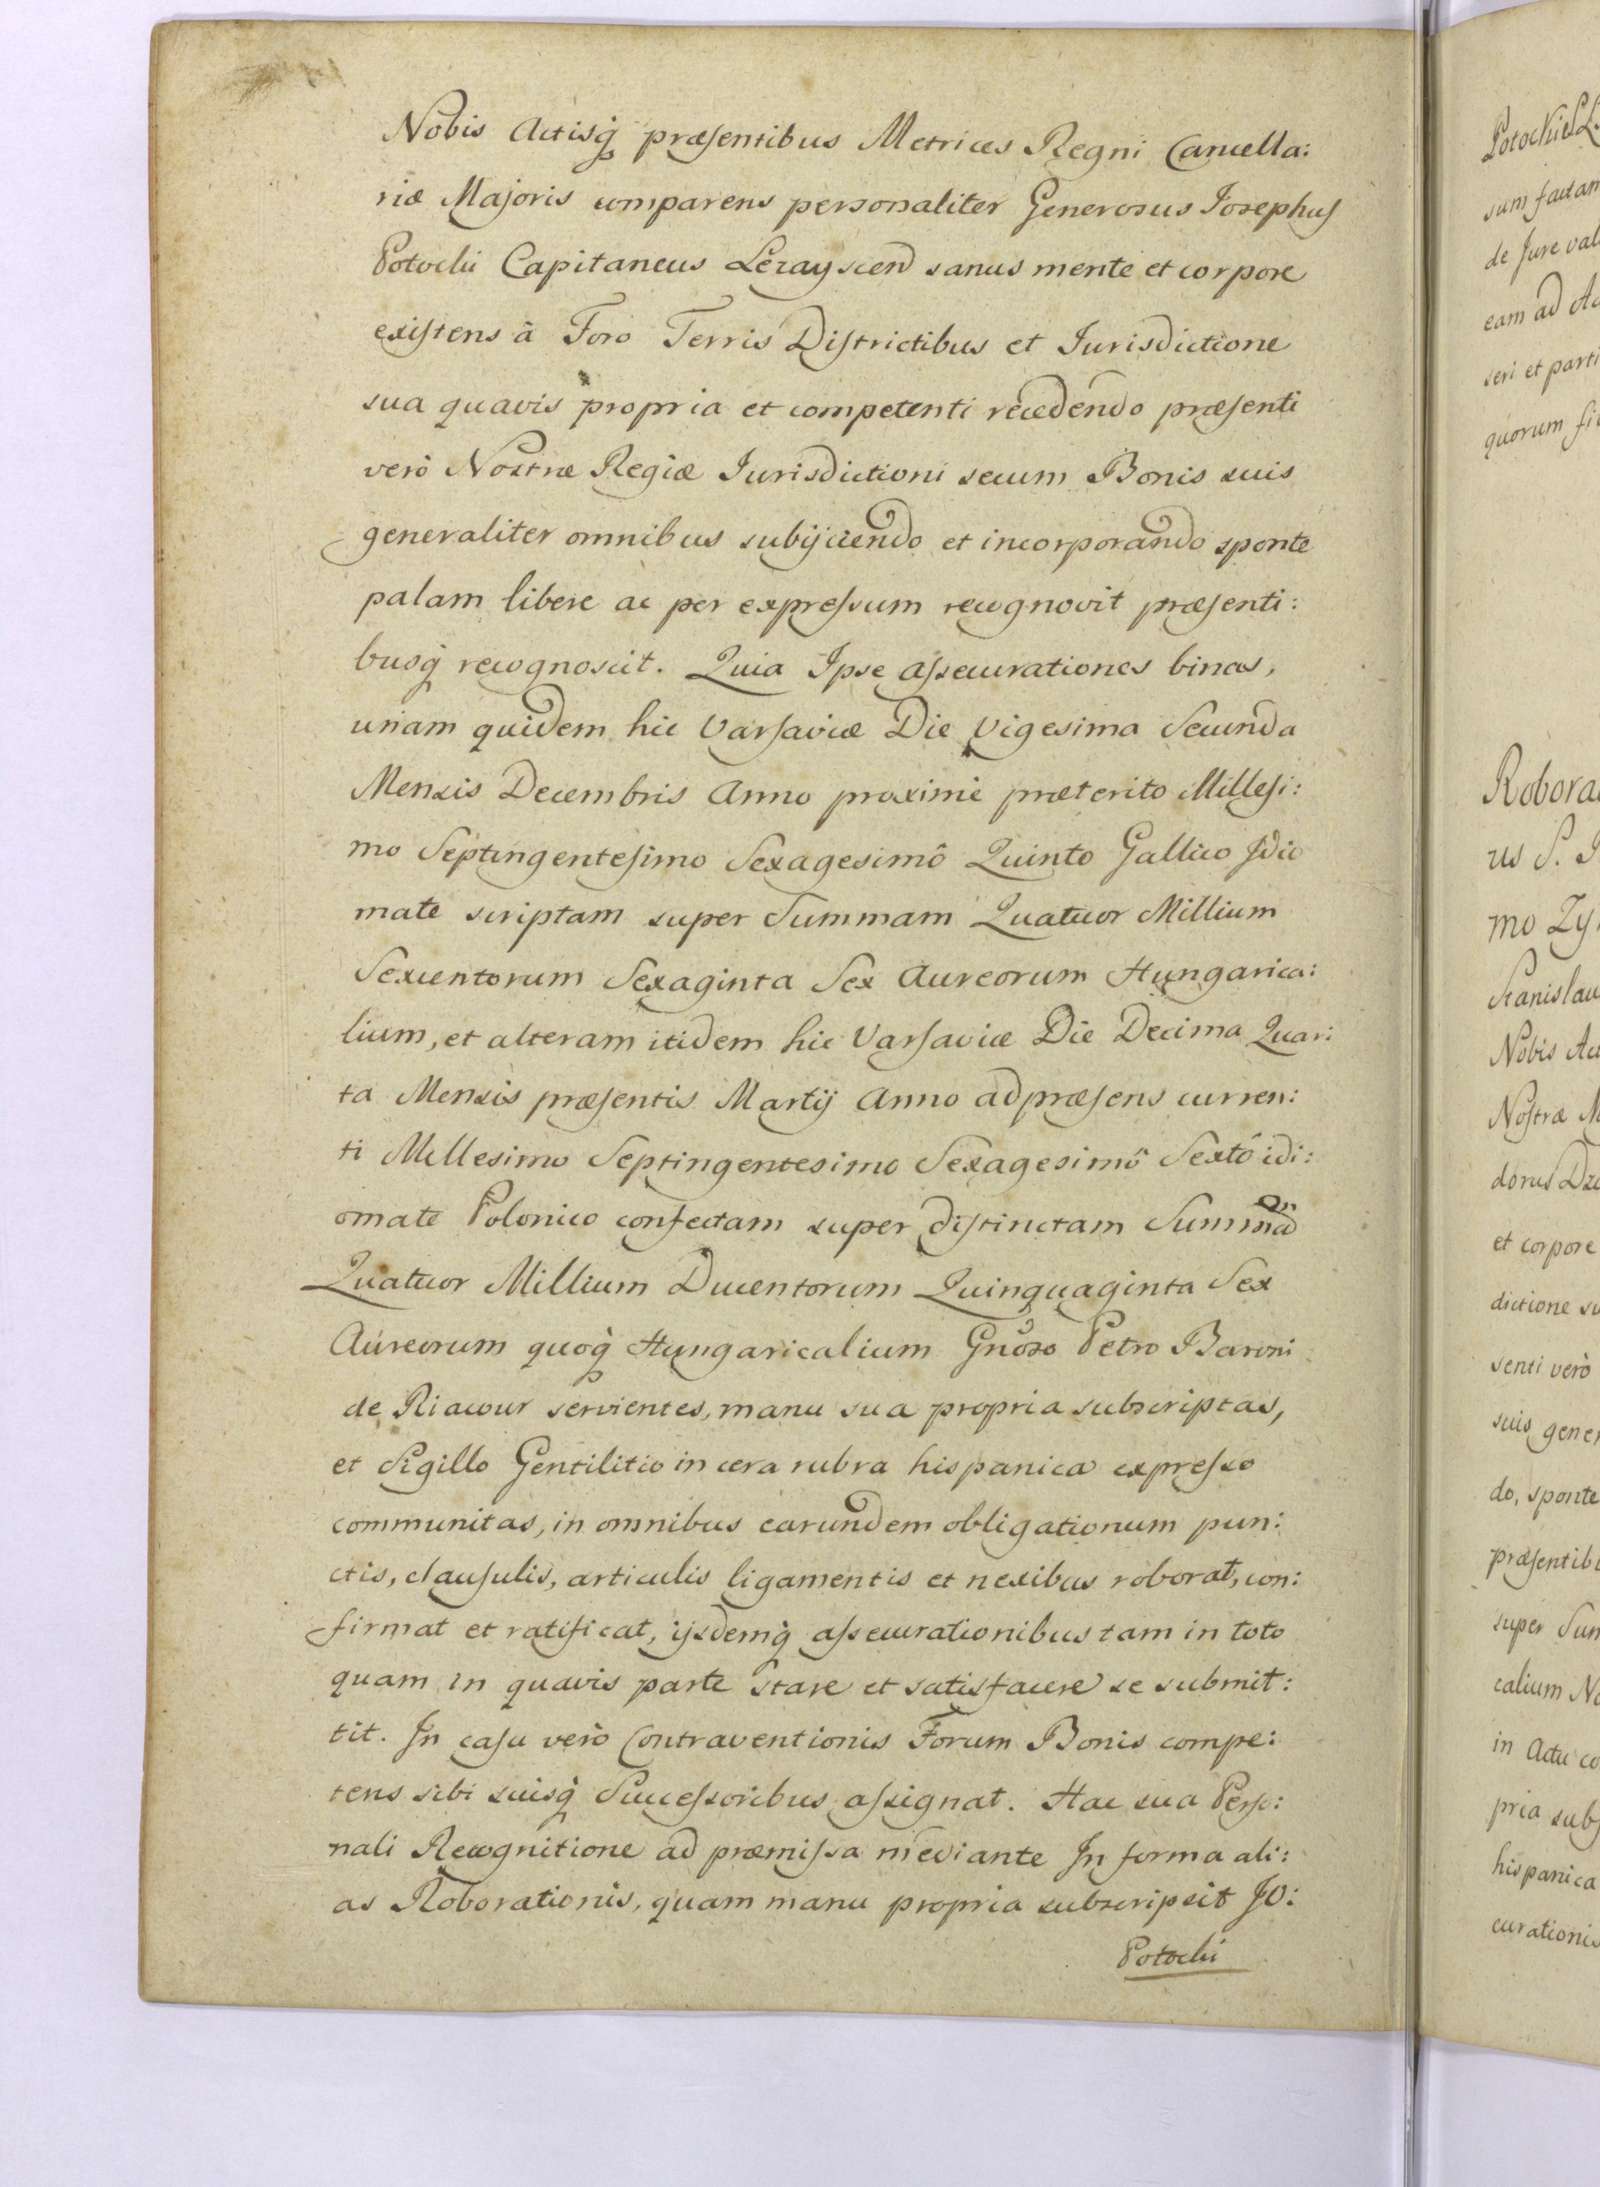 Nobis Actisq̀ præsentibus Metrices Regni Cancella:
riæ Majoris comparens personaliter Generosus Josephus
Potocki Capitaneus Lezayscen sanus mente et corpore
existens à Foro Terris Districtibus et Jurisdictione
sua quavis propria et competenti recedendo præsenti
verò Nostræ Regiæ Jurisdictioni secum Bonis suis
generaliter omnibus subijciendo et incorporando sponte
palam libere ac per expressum recognovit præsenti:
busq̀ recognoscit. Quia Ipse Assecurationes binas,
unam quidem hic Varsaviæ Die Vigesima Secunda
Mensis Decembris Anno proxime præterito Millesi:
mo Septingentesimo Sexagesimô Quinto Gallico Jdio
mate scriptam super Summam Quatuor Millium
Sexcentorum Sexaginta Sex Aureorum Hungarica:
lium, et alteram itidem hic Varsaviæ Die Decima Quar:
ta Mensis præsentis Martij Anno ad præsens curren:
ti Millesimo Septingentesimo Sexagesimô Sextô idi:
omate Polonico confectam super distinctam Summam
Quatuor Millium Ducentorum Quinquaginta Sex
Aureorum quoq̀ Hungaricalium Gnoso Petro Baroni
de Riacour servientes, manu sua propria subscriptas,
et Sigillo Gentilitio in cera rubra hispanica expresso
communitas, in omnibus earundem obligationum pun:
ctis, clausulis, articulis ligamentis et nexibus roborat, con:
firmat et ratificat, ijsdemq̀ assecurationibus tam in toto
quam in quavis parte stare et satisfacere se submit:
tit. In casu verò Contraventionis Forum Bonis compe:
tens sibi suisq̀ Successoribus assignat. Hac sua Perso:
nali Recognitione ad præmissa mediante In forma ali:
as Roborationis, quam manu propria subscripsit JO:
Potocki
Potocki
sum factam
de Jure val
eam ad Ac
seri et parti
quorum fi
Robora
us S.
mo Zy
Stanislau
Nobis Ac
Nostræ M
dorus Dz
et corpore
dictione su
senti verò
suis gener
do, sponte
præsentibu
super Sum
calium No
in Actu co
pria subs
hispanica
curationis